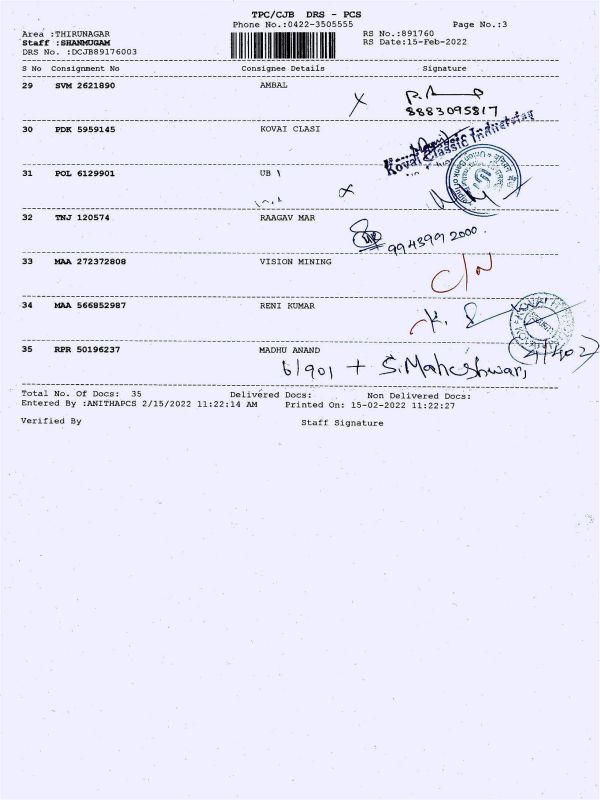 TPC/CJB DRS - PCS
Phone No.:0422-3505555 Page No.:3
Area :THIRUNAGAR RS No.:891760
Staff :SHANMUGAM RS Date:15-Feb-2022
DRS No. :DCJB89176003
S No Consignment No Consignee Details Signature
29 SVM 2621890 AMBAL
8883095817
30 PDK 5959145 KOVAI CLASI
Kovai Classic Industries
31 POL 6129901 UB \
32 TNJ 120574 RAAGAV MAR
994399 2000.
33 MAA 272372808 VISION MINING
C/N
34 MAA 566852987 RENI KUMAR
35 RPR 50196237 MADHU ANAND
6/901 + S.Maheshwari
Total No. Of Docs: 35 Delivered Docs: Non Delivered Docs:
Entered By :ANITHAPCS 2/15/2022 11:22:14 AM Printed On: 15-02-2022 11:22:27
Verified By Staff Signature